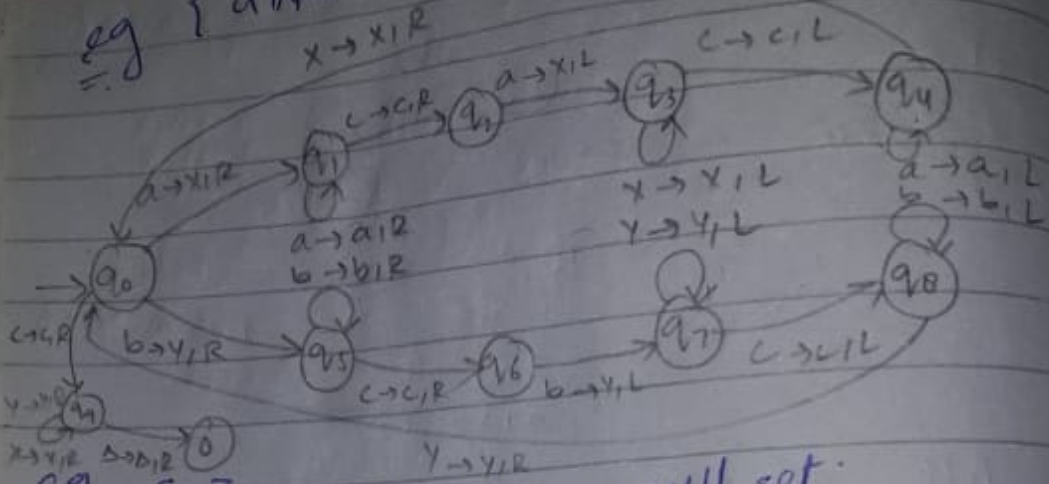 eg {
X → X, R
c → c, L
a → X, L
c → c, R
q1
q2
q3
q4
a → X, R
X → X, L
Y → Y, L
a → a, L
b → b, L
a → a, R
b → b, R
q0
q8
c → c, R
b → Y, R
q5
q6
q7
c → c, R
b → Y, L
c → c, L
q9
X → X, R
Δ → Δ, R
Y → Y, R